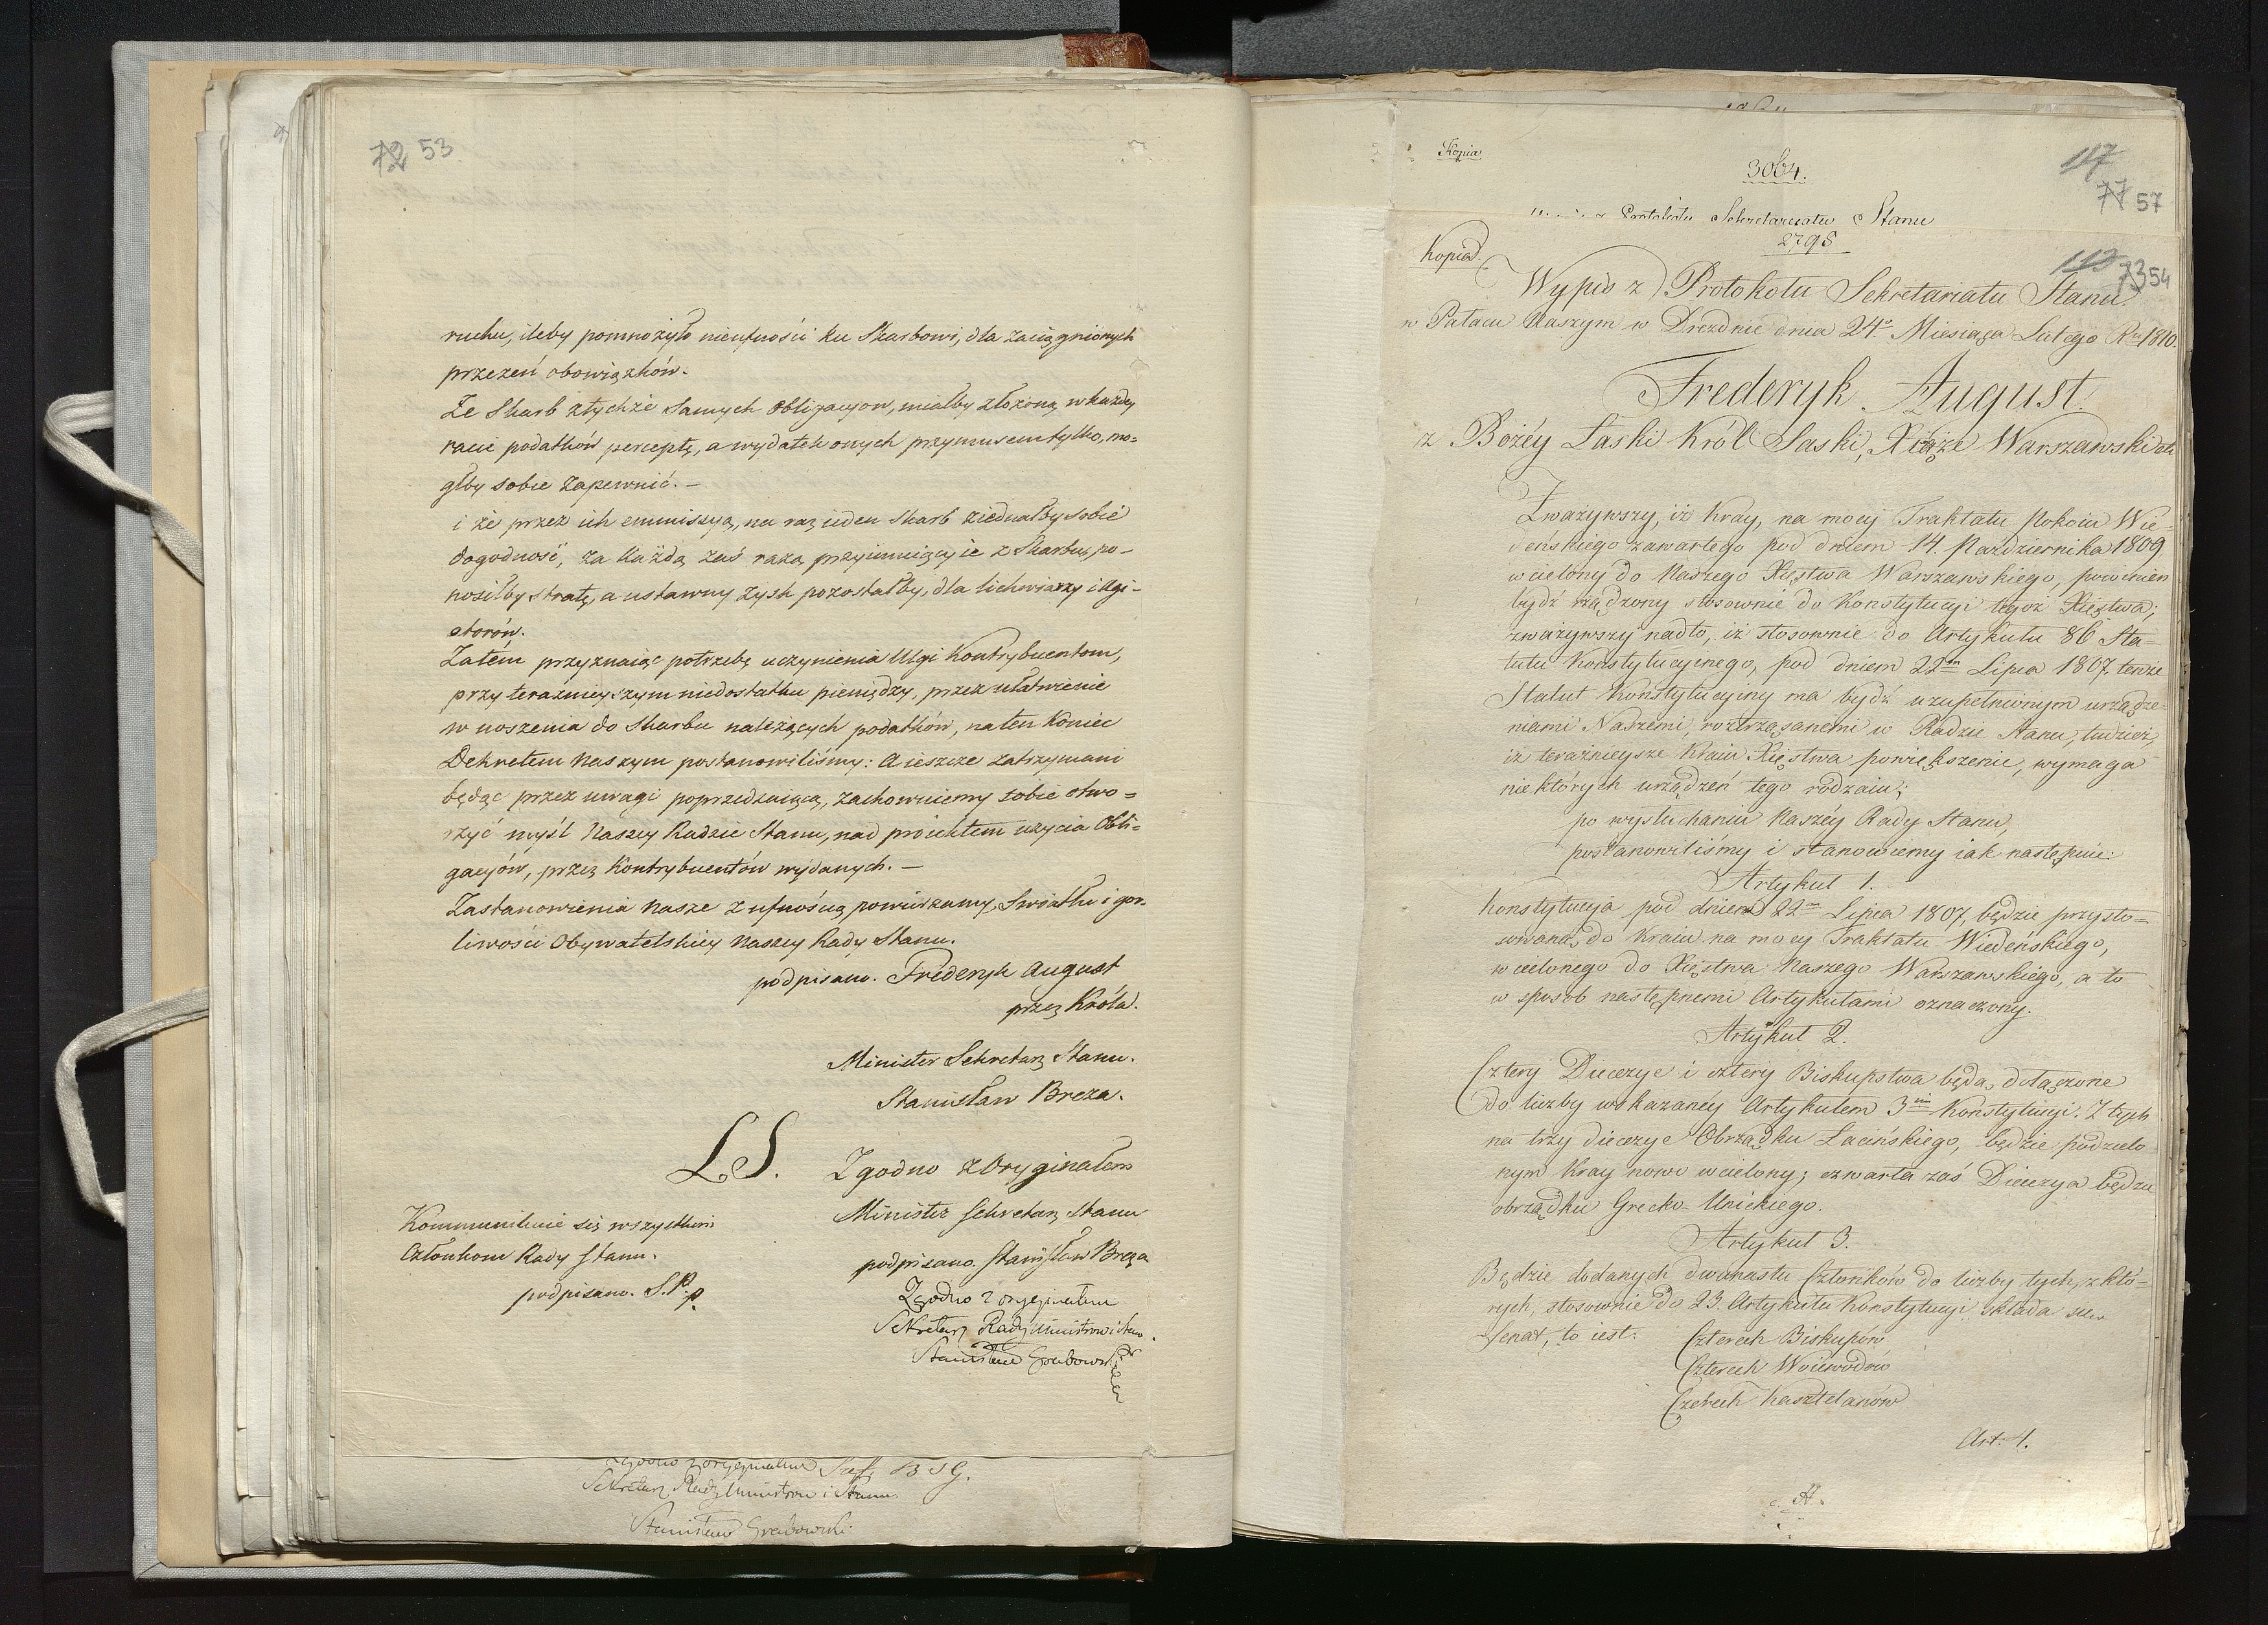 72 53
ruchu, ileby pomnożyło nieufności ku Skarbowi, dla zaciągnionych
przezeń obowiązków.
Ze Skarb z tychże samych Obligacyow, miałby złożoną w każdey
racie podatków perceptę, a wydatek onych przymusem tylko, mo=
głby sobie zapewnić. –
i że przez ich emmissyą, na raz ieden Skarb ziednałby sobie
dogodność, za każdą zaś razą przyimuiący ie z Skarbu, po-
nosiłby stratę, a ustawny zysk pozostałby, dla lichwiarzy i Agi-
otorów.
Zatém przyznaiąc potrzebę uczynienia Ulgi Kontrybuentom,
przy teraźnieyszym niedostatku pieniędzy, przez ułatwienie
wnoszenia do Skarbu należących podatków, na ten Koniec
Dekretem Naszym postanowiliśmy: A ieszcze zatrzymani
będąc przez uwagi poprzedzaiącą, zachowuiemy sobie otwo=
rzyć myśl Naszey Radzie Stanu, nad proiektem użycia Obli=
gacyów, przez Kontrybuentów wydanych. –
Zastanowienia Nasze z ufnością powierzamy, Światłu i gor-
liwości Obywatelskiey Naszey Rady Stanu.
podpisano. Fréderyk August
przez Króla.
Minister Sekretarz Stanu.
Stanisław Breza.
LS. Zgodno z Oryginałem
Minister Sekretarz Stanu
podpisano. Stanisław Breza
Kommunikuie się wszystkim
Członkom Rady Stanu.
podpisano. S. P. p.
Zgodno z oryginałem
Sekretarz Rady Ministrow i Stanu.
Stanisław Grabowski
Zgodno z oryginałem
Sekretarz Rady Ministrow i Stanu
Stanisław Grabowski
Kopia
3064.
117
77 57
Protokółu Sekretaryatu Stanu
2795
Kopia.
113 73 54
Wypis z Protokołu Sekretariatu Stanu.
w Pałacu Naszym w Dreznie dnia 24.° Miesiąca Lutego Rku 1810.
Frederyk August.
z Bożéy Łaski Król Saski, Xiąże Warszawski etc
Zważywszy, iż Kray, na mocy Traktatu Pokoiu Wie-
deńskiego zawartego pod dniem 14. Października 1809
wcielony do Naszego Xięstwa Warszawskiego, powinien
bydź rządzony stosownie do Konstytucyi tegoż Xięstwa;
zważywszy nadto, iż stosownie do Artykułu 86 Sta-
tutu Konstytucyinego, pod dniem 22m Lipca 1807. tenże
Statut Konstytucyiny ma bydź uzupełnionym urządze-
niami Naszemi, roztrząsanemi w Radzie Stanu, tudzież,
iż teraźnieysze Kraiu Xięstwa powiększenie, wymaga
niektórych urządzeń tego rodzaiu;
po wysłuchaniu Naszéy Rady Stanu,
postanowiliśmy i stanowiemy iak następuie:
Artykuł 1.
Konstytucya pod dniem 22m Lipca 1807, będzie przysto=
sowaną do Kraiu na mocy Traktatu Wiedeńskiego,
wcielonego do Xięstwa Naszego Warszawskiego, a to
w sposób następnemi Artykułami oznaczony.
Artykuł 2.
Cztery Diecezye i cztery Biskupstwa będą dołączone
do liczby wskazanéy Artykułem 3im Konstytucyi. Z tych
na trzy diecezye Obrządku Łacińskiego, będzie podzielo
nym Kray nowo wcielony; czwarta zaś Diecezya będzie
obrządku Grecko-Unickiego.
Artykuł 3.
Będzie dodanych dwunastu Członków do liczby tych, z któ=
rych, stosownie do 23. Artykułu Konstytucyi składa się
Senat, to iest: Czterech Biskupów
Czterech Woiewodów
Czterech Kasztelanów
Art. 4.